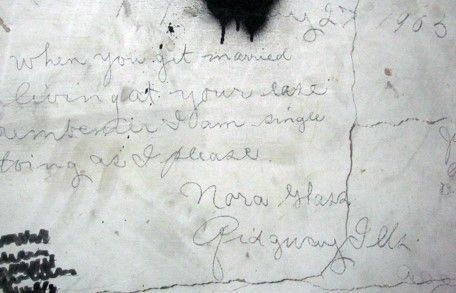 y 27 1903
When you get married
living at your ease
remember I am single
doing as I please.
Nora Glass
Ridgway Ills.